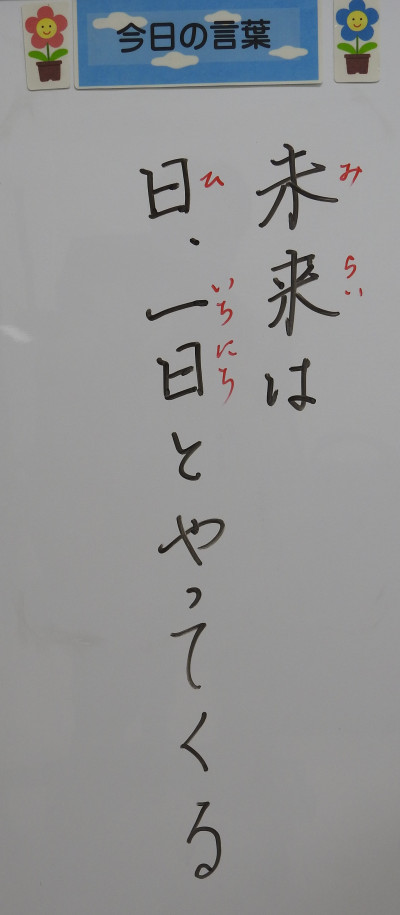 今日の言葉
未来は
みらい
日、一日とやってくる
ひ いちにち